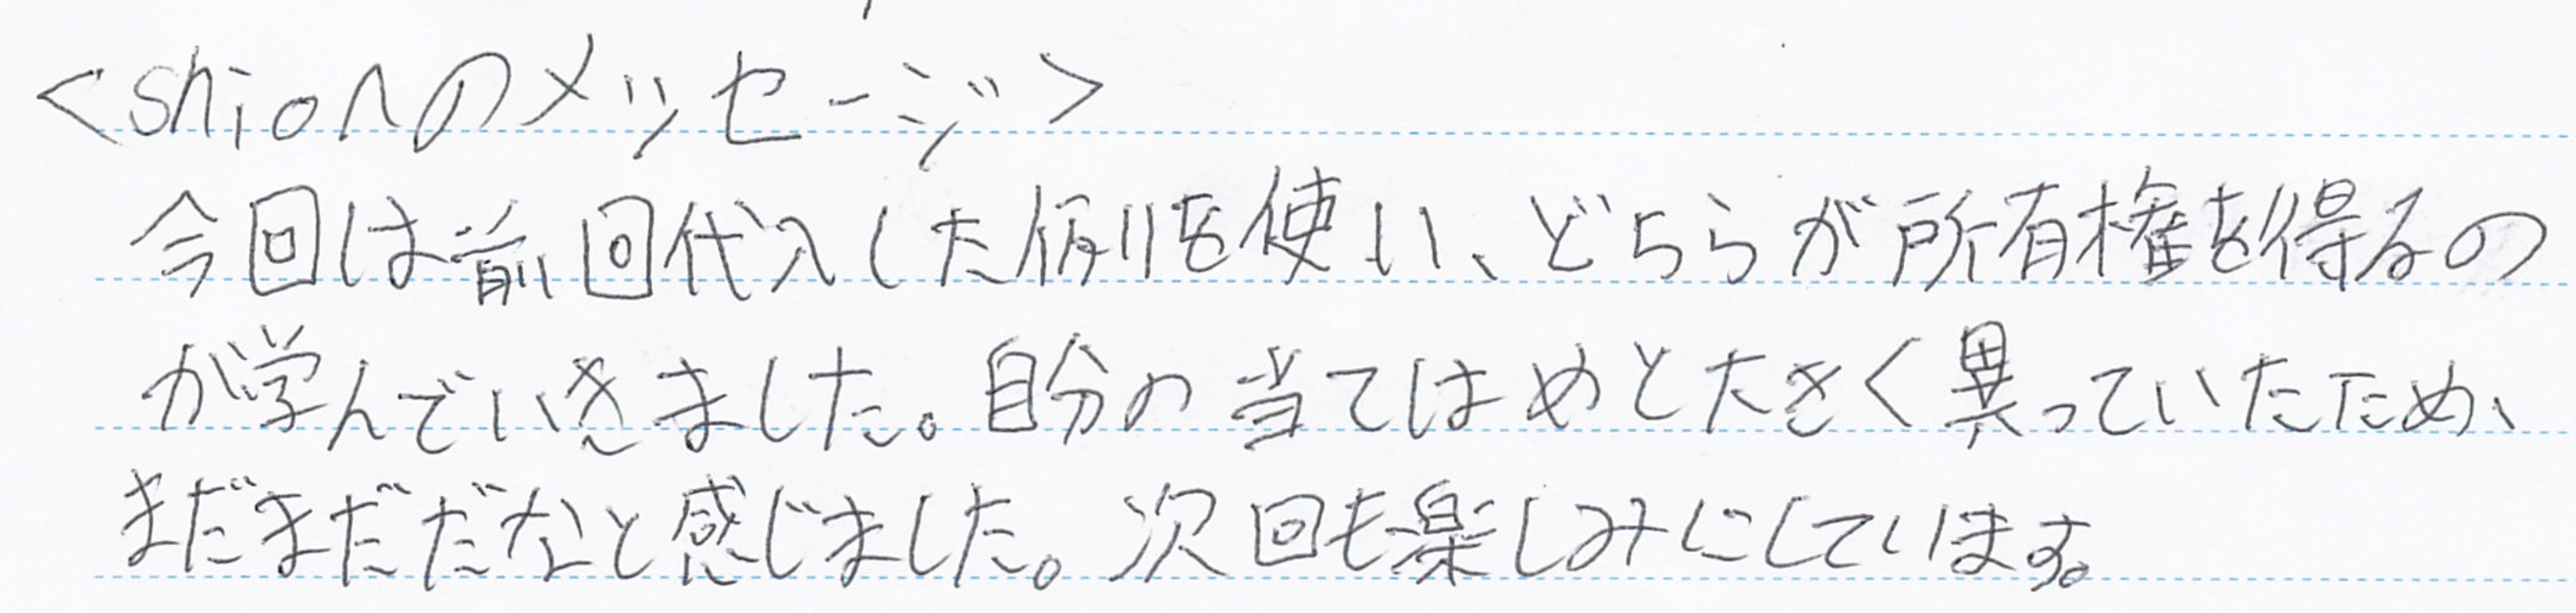 <shioへのメッセージ>
今回は前回代入した例を使い、どちらが所有権を得るの
が学んでいきました。自分の当てはめと大きく異っていたため、
まだまだだなと感じました。次回も楽しみにしています。